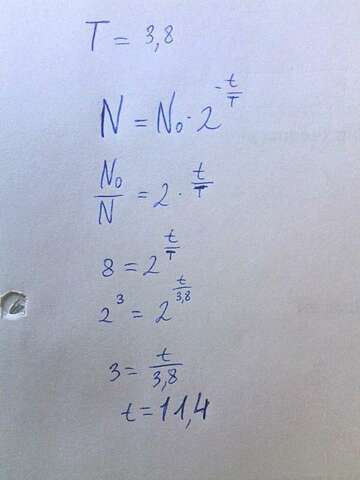 T = 3,8
N = N₀ · 2^(-t/T)
N₀/N = 2 · t/T
8 = 2^(t/T)
2³ = 2^(t/3,8)
3 = t/3,8
t = 11,4